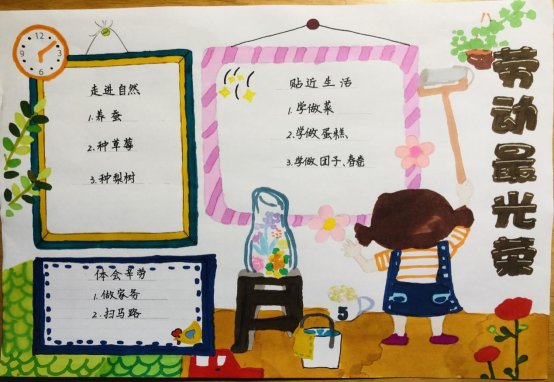 劳动最光荣
12
3
6
9
走进自然
1.养蚕
2.种草莓
3.种梨树
贴近生活
1.学做菜
2.学做蛋糕、
3.学做团子、春卷
体会辛劳
1.做家务
2.扫马路
5